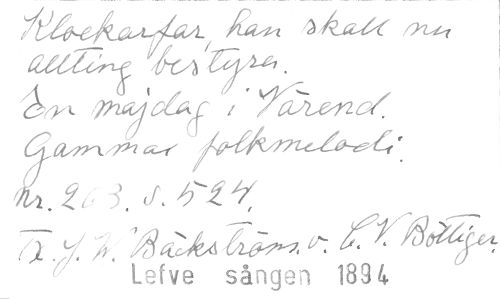 Klockarfar, han skall nu
allting bestyra.
En majdag i Värend.
Gammal folkmelodi.
nr. 263. s. 524.
Tx. J. W. Bäckström. o. C. V. Böttiger.
Lefve sången 1894